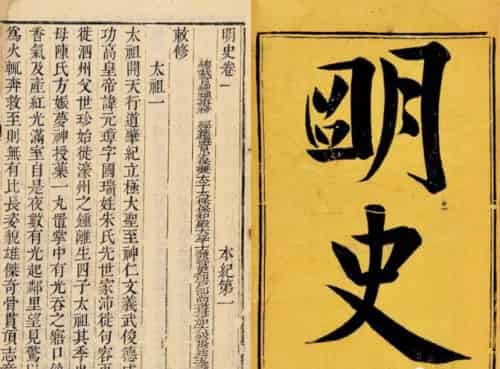 明史
明史卷一 本紀第一
敕修
太祖一
太祖開天行道肇紀立極大聖至神仁文義武俊德成
功高皇帝諱元璋字國瑞姓朱氏先世家沛徙句容再
徙泗州父世珍始徙濠州之鍾離生四子太祖其季也
母陳氏方娠夢神授藥一丸置掌中有光吞之寤口餘
香氣及產紅光滿室自是夜數有光起鄰里望見驚以
爲火輒奔救至則無有比長姿貌雄傑奇骨貫頂志意